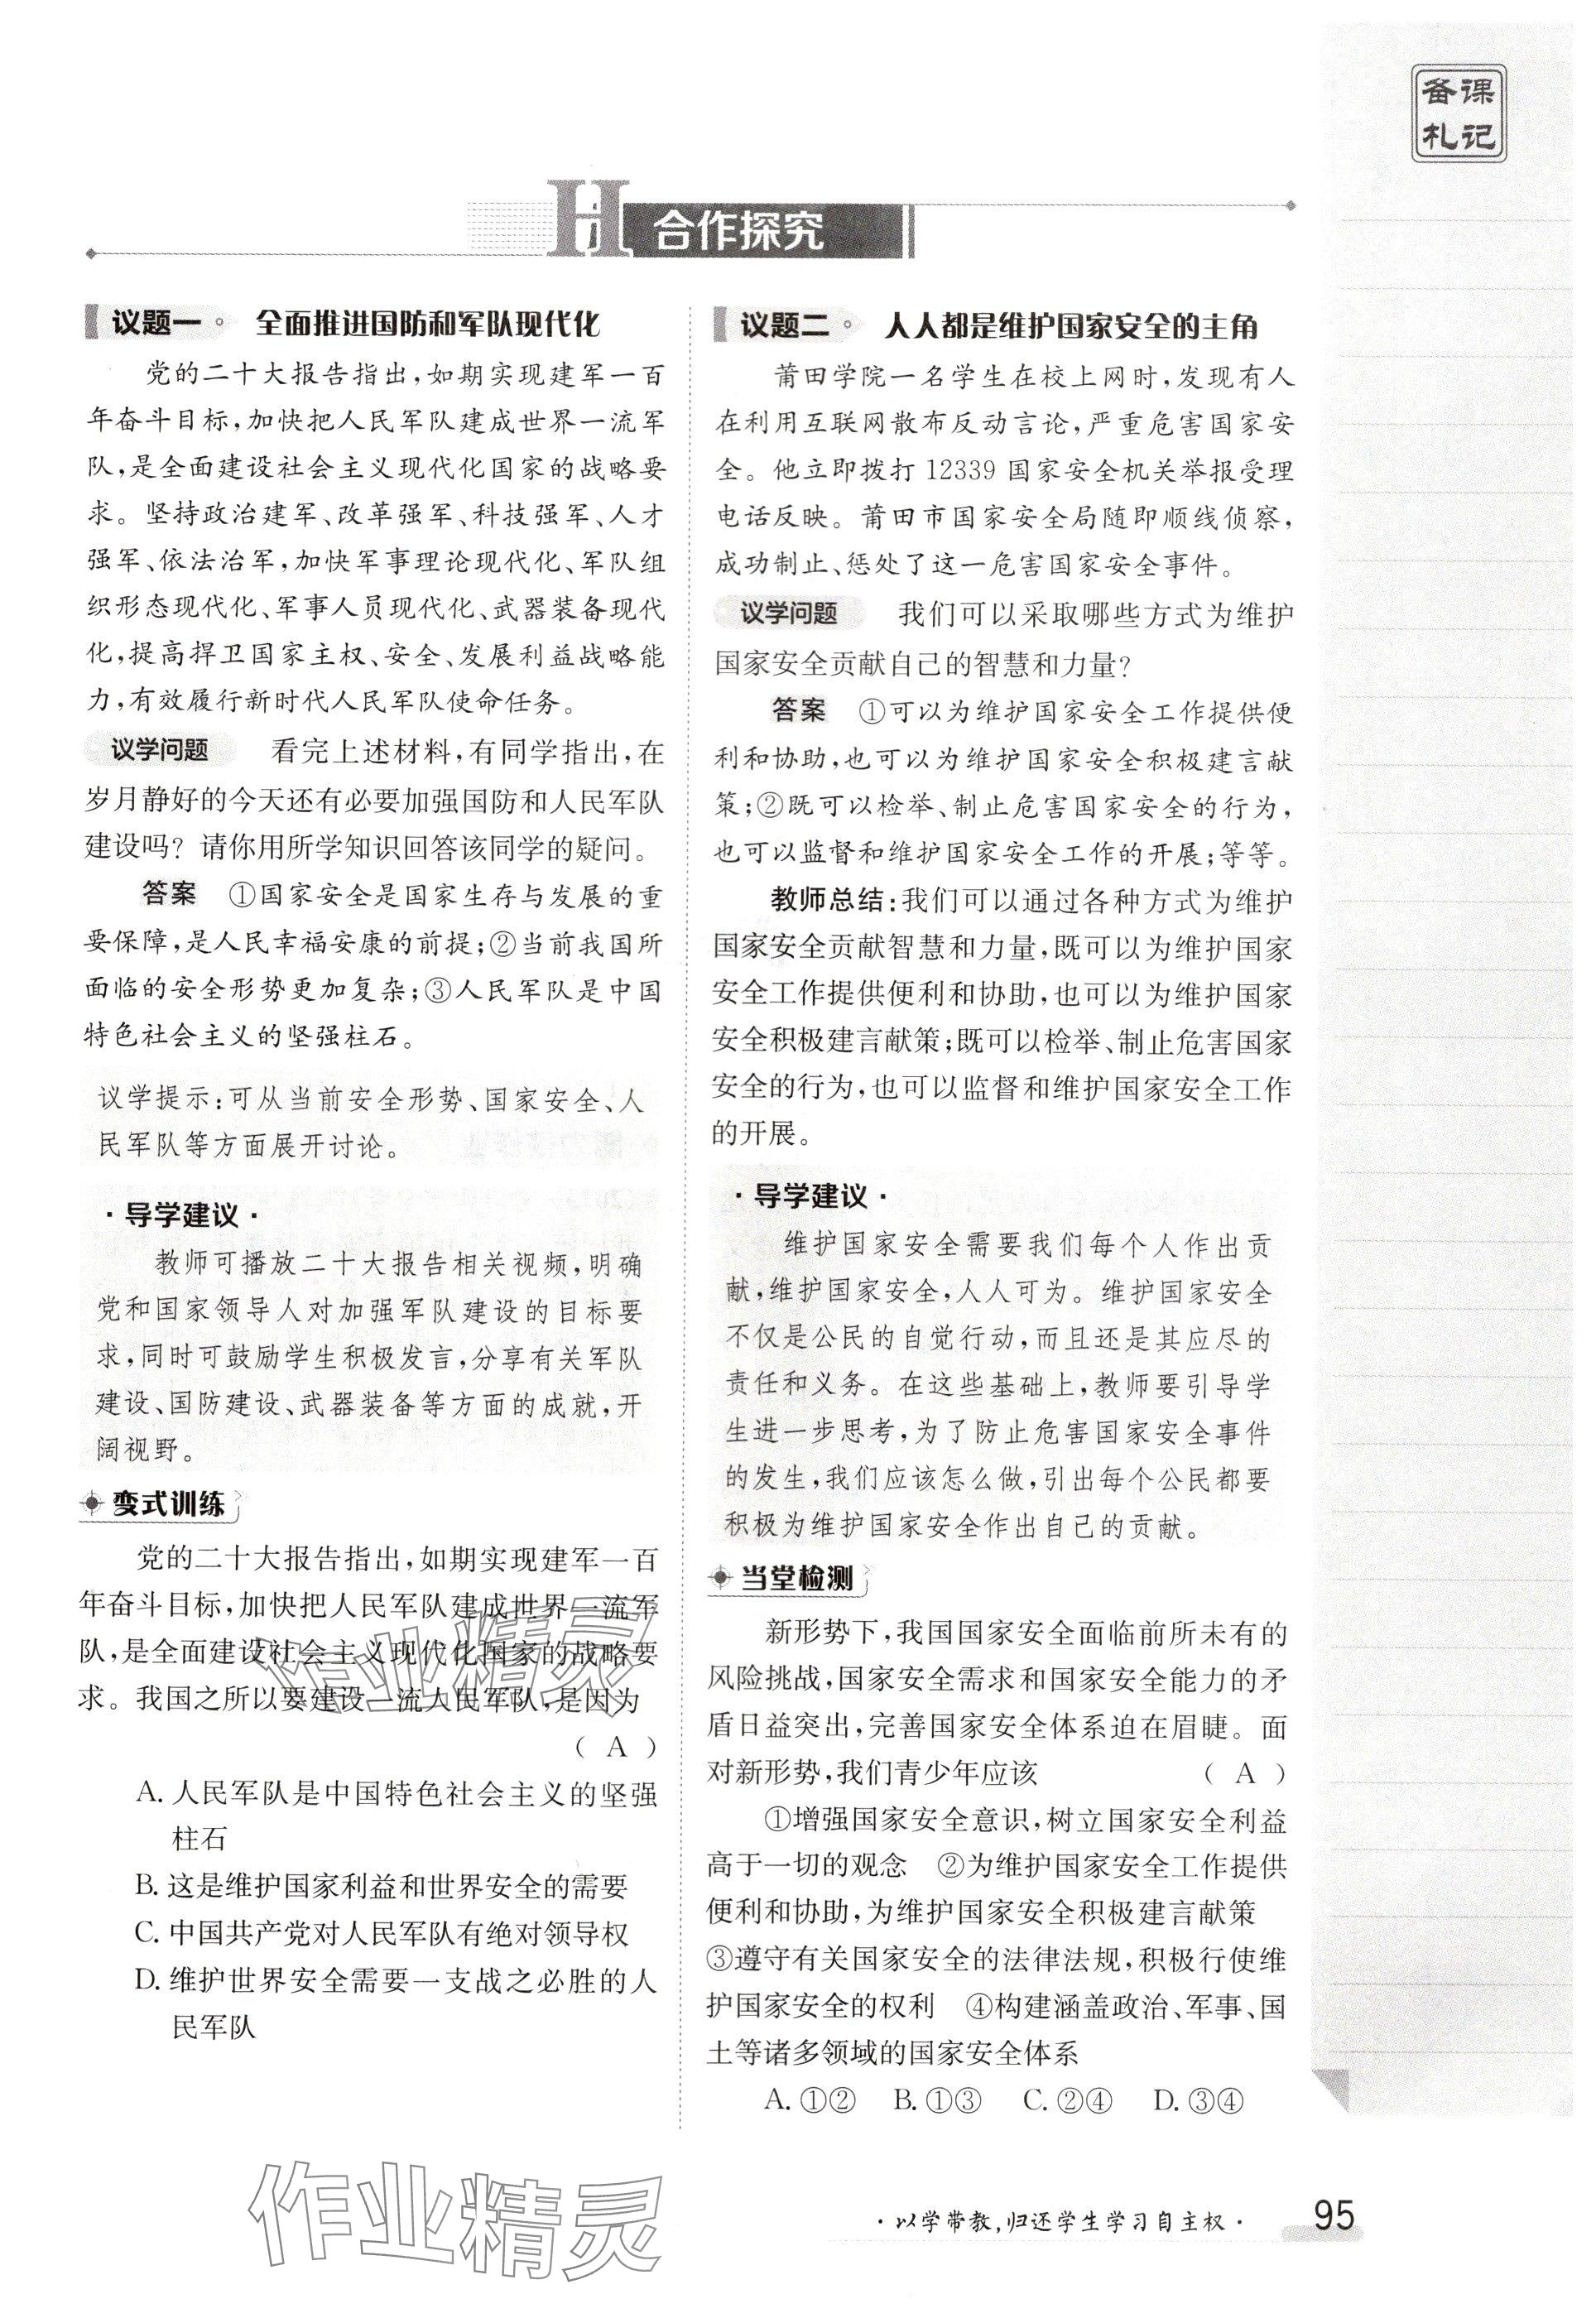 备课
札记
合作探究
议题一 全面推进国防和军队现代化
党的二十大报告指出,如期实现建军一百
年奋斗目标,加快把人民军队建成世界一流军
队,是全面建设社会主义现代化国家的战略要
求。坚持政治建军、改革强军、科技强军、人才
强军、依法治军,加快军事理论现代化、军队组
织形态现代化、军事人员现代化、武器装备现代
化,提高捍卫国家主权、安全、发展利益战略能
力,有效履行新时代人民军队使命任务。
议学问题 看完上述材料,有同学指出,在
岁月静好的今天还有必要加强国防和人民军队
建设吗? 请你用所学知识回答该同学的疑问。
答案 ①国家安全是国家生存与发展的重
要保障,是人民幸福安康的前提;②当前我国所
面临的安全形势更加复杂;③人民军队是中国
特色社会主义的坚强柱石。
议学提示:可从当前安全形势、国家安全、人
民军队等方面展开讨论。
·导学建议·
教师可播放二十大报告相关视频,明确
党和国家领导人对加强军队建设的目标要
求,同时可鼓励学生积极发言,分享有关军队
建设、国防建设、武器装备等方面的成就,开
阔视野。
变式训练
党的二十大报告指出,如期实现建军一百
年奋斗目标,加快把人民军队建成世界一流军
队,是全面建设社会主义现代化国家的战略要
求。我国之所以要建设一流人民军队,是因为
( A )
A. 人民军队是中国特色社会主义的坚强
柱石
B. 这是维护国家利益和世界安全的需要
C. 中国共产党对人民军队有绝对领导权
D. 维护世界安全需要一支战之必胜的人
民军队
议题二 人人都是维护国家安全的主角
莆田学院一名学生在校上网时,发现有人
在利用互联网散布反动言论,严重危害国家安
全。他立即拨打 12339 国家安全机关举报受理
电话反映。莆田市国家安全局随即顺线侦察,
成功制止、惩处了这一危害国家安全事件。
议学问题 我们可以采取哪些方式为维护
国家安全贡献自己的智慧和力量?
答案 ①可以为维护国家安全工作提供便
利和协助,也可以为维护国家安全积极建言献
策;②既可以检举、制止危害国家安全的行为,
也可以监督和维护国家安全工作的开展;等等。
教师总结:我们可以通过各种方式为维护
国家安全贡献智慧和力量,既可以为维护国家
安全工作提供便利和协助,也可以为维护国家
安全积极建言献策;既可以检举、制止危害国家
安全的行为,也可以监督和维护国家安全工作
的开展。
·导学建议·
维护国家安全需要我们每个人作出贡
献,维护国家安全,人人可为。维护国家安全
不仅是公民的自觉行动,而且还是其应尽的
责任和义务。在这些基础上,教师要引导学
生进一步思考,为了防止危害国家安全事件
的发生,我们应该怎么做,引出每个公民都要
积极为维护国家安全作出自己的贡献。
当堂检测
新形势下,我国国家安全面临前所未有的
风险挑战,国家安全需求和国家安全能力的矛
盾日益突出,完善国家安全体系迫在眉睫。面
对新形势,我们青少年应该 ( A )
①增强国家安全意识,树立国家安全利益
高于一切的观念 ②为维护国家安全工作提供
便利和协助,为维护国家安全积极建言献策
③遵守有关国家安全的法律法规,积极行使维
护国家安全的权利 ④构建涵盖政治、军事、国
土等诸多领域的国家安全体系
A. ①② B. ①③ C. ②④ D. ③④
作业精灵
作业精灵
·以学带教,归还学生学习自主权·
95